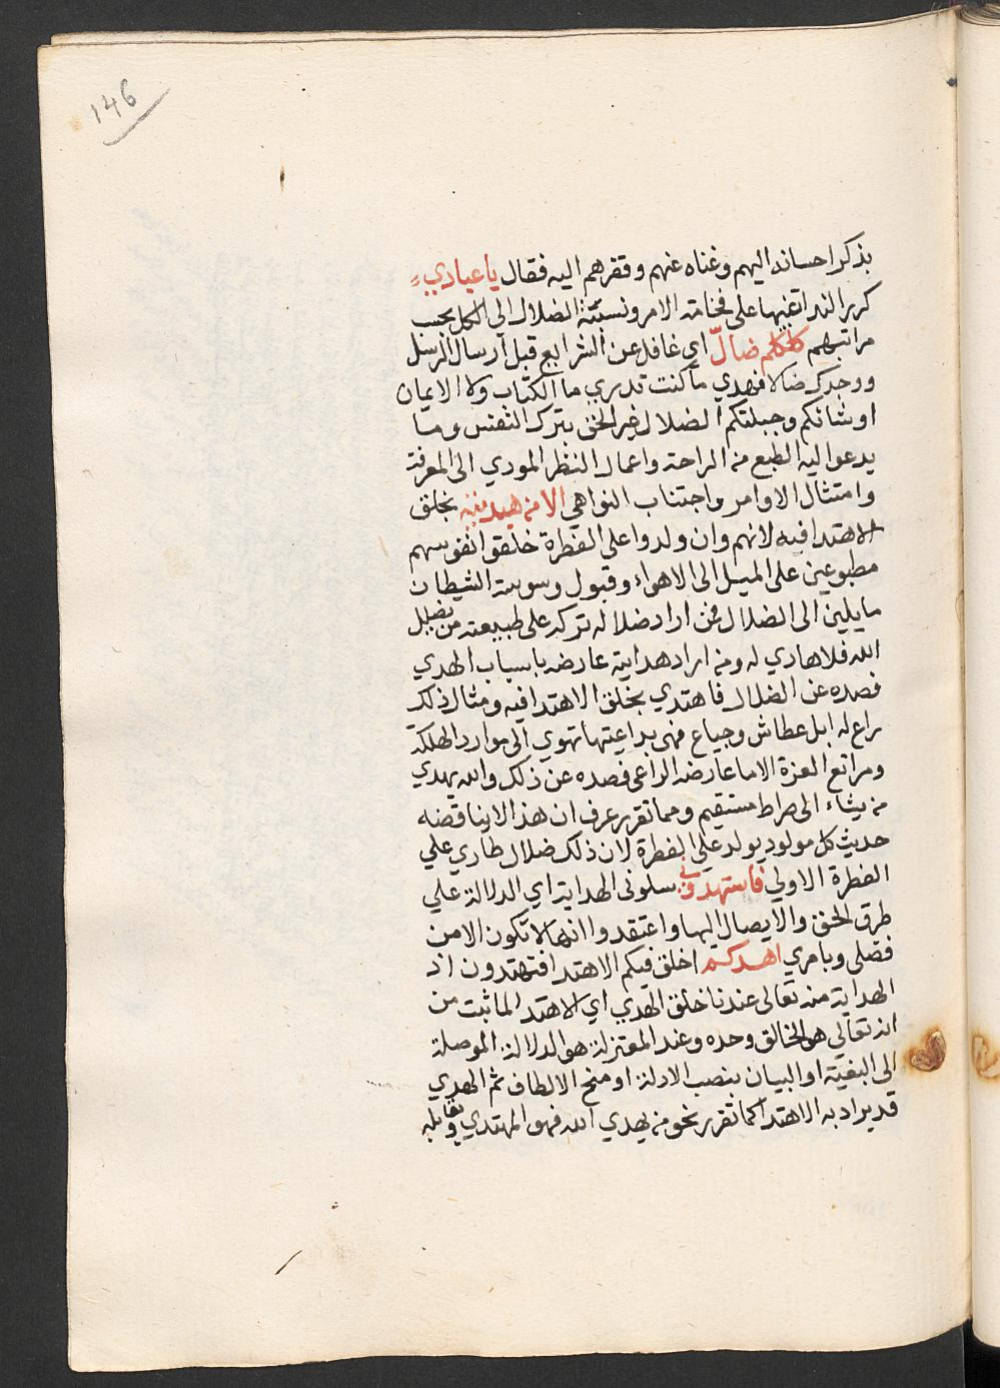 146
بذكر احسانه اليهم وغناه عنهم وفقرهم اليه فقال يا عبادي
كرر الندا تنبيها على فخامة الامر ونسبة الضلال الى الكل بحسب
مراتبهم كلكم ضال اي غافل عن الشرايع قبل ارسال الرسل
ووجدك ضالا فهدي ما كنت تدري ما الكتاب ولا الايمان
او شانكم وجبلتكم الضلال غير الحق بترك النفس وما
يدعوا اليه الطبع من الراحة واعمال النظر المودي الى المعرفة
وامتثال الاوامر واجتناب النواهي الا من هديته بخلق
الاهتدا فيه لانهم وان ولدوا على الفطرة خلقوا انفوسهم
مطبوعين على الميل الى الاهواء وقبول وسوسة الشيطان
مايلين الى الضلال فمن اراد ضلاله تركه على طبيعته من يضلل
الله فلا هادي له ومن اراد هدايته عارضه باسباب الهدي
فصده عن الضلال فاهتدي بخلق الاهتدا فيه ومثال ذلك
راع له ابل عطاش وجياع فهي بداعيتها تهوي الى موارد الهلكة
ومراتع العزة الا ما عارضه الراعى فصده عن ذلك والله يهدي
من يشاء الى صراط مستقيم ومما تقرر عرف ان هذا لا يناقضه
حديث كل مولود يولد على الفطرة لان ذلك ضلال طاري علي
الفطرة الاولي فاستهدوني سلونى الهداية اي الدلالة علي
طرق الحق والايصال اليها واعتقدوا انها لا تكون الا من
فضلى وبامري اهدكم اخلق فيكم الاهتدا فتهتدون اذ
الهداية منه تعالى عندنا خلق الهدي اي الاهتدا لما ثبت من
انه تعالى هو الخالق وحده وعند المعتزلة هو الدلالة الموصلة
الى البغية او البيان بنصب الادلة او منح الالطاف ثم الهدي
قد يراد به الاهتدا كما تقرر نحو من يهدي الله فهو المهتدي ويقابله